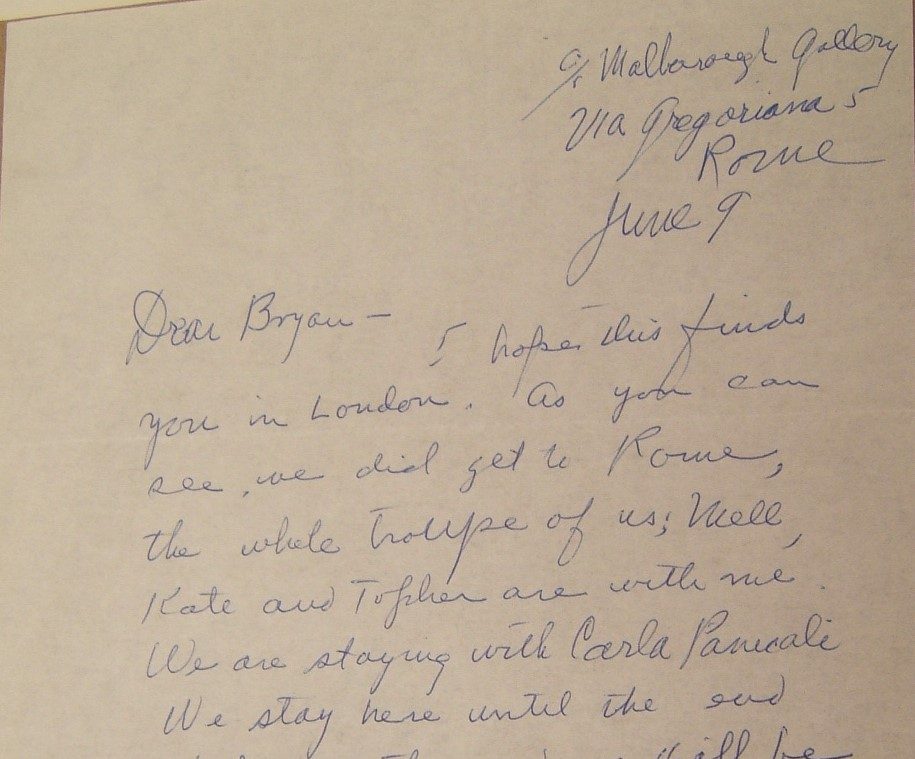 c/o Malborough Gallery
Via Gregoriana 5
Rome
June 9
Dear Bryan —
I hope this finds
you in London. As you can
see, we did get to Rome,
the whole troupe of us; Mell,
Kate and Topher are with me.
We are staying with Carla Panicali
We stay here until the end
will be